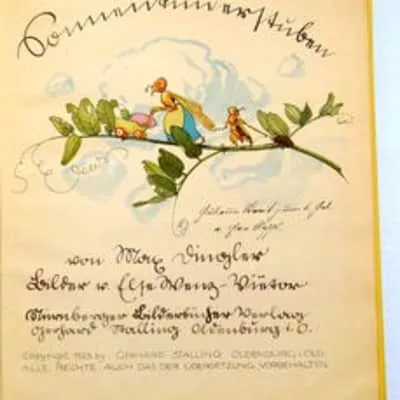 Sonnenkinderstuben
von Max Dingler
Bilder v. Else Wenz-Vietor
Nürnberger Bilderbücher Verlag
Gerhard Stalling Oldenburg i. O.
COPYRIGHT BY GERHARD STALLING OLDENBURG, OLD
ALLE RECHTE AUCH DAS DER ÜBERSETZUNG VORBEHALTEN